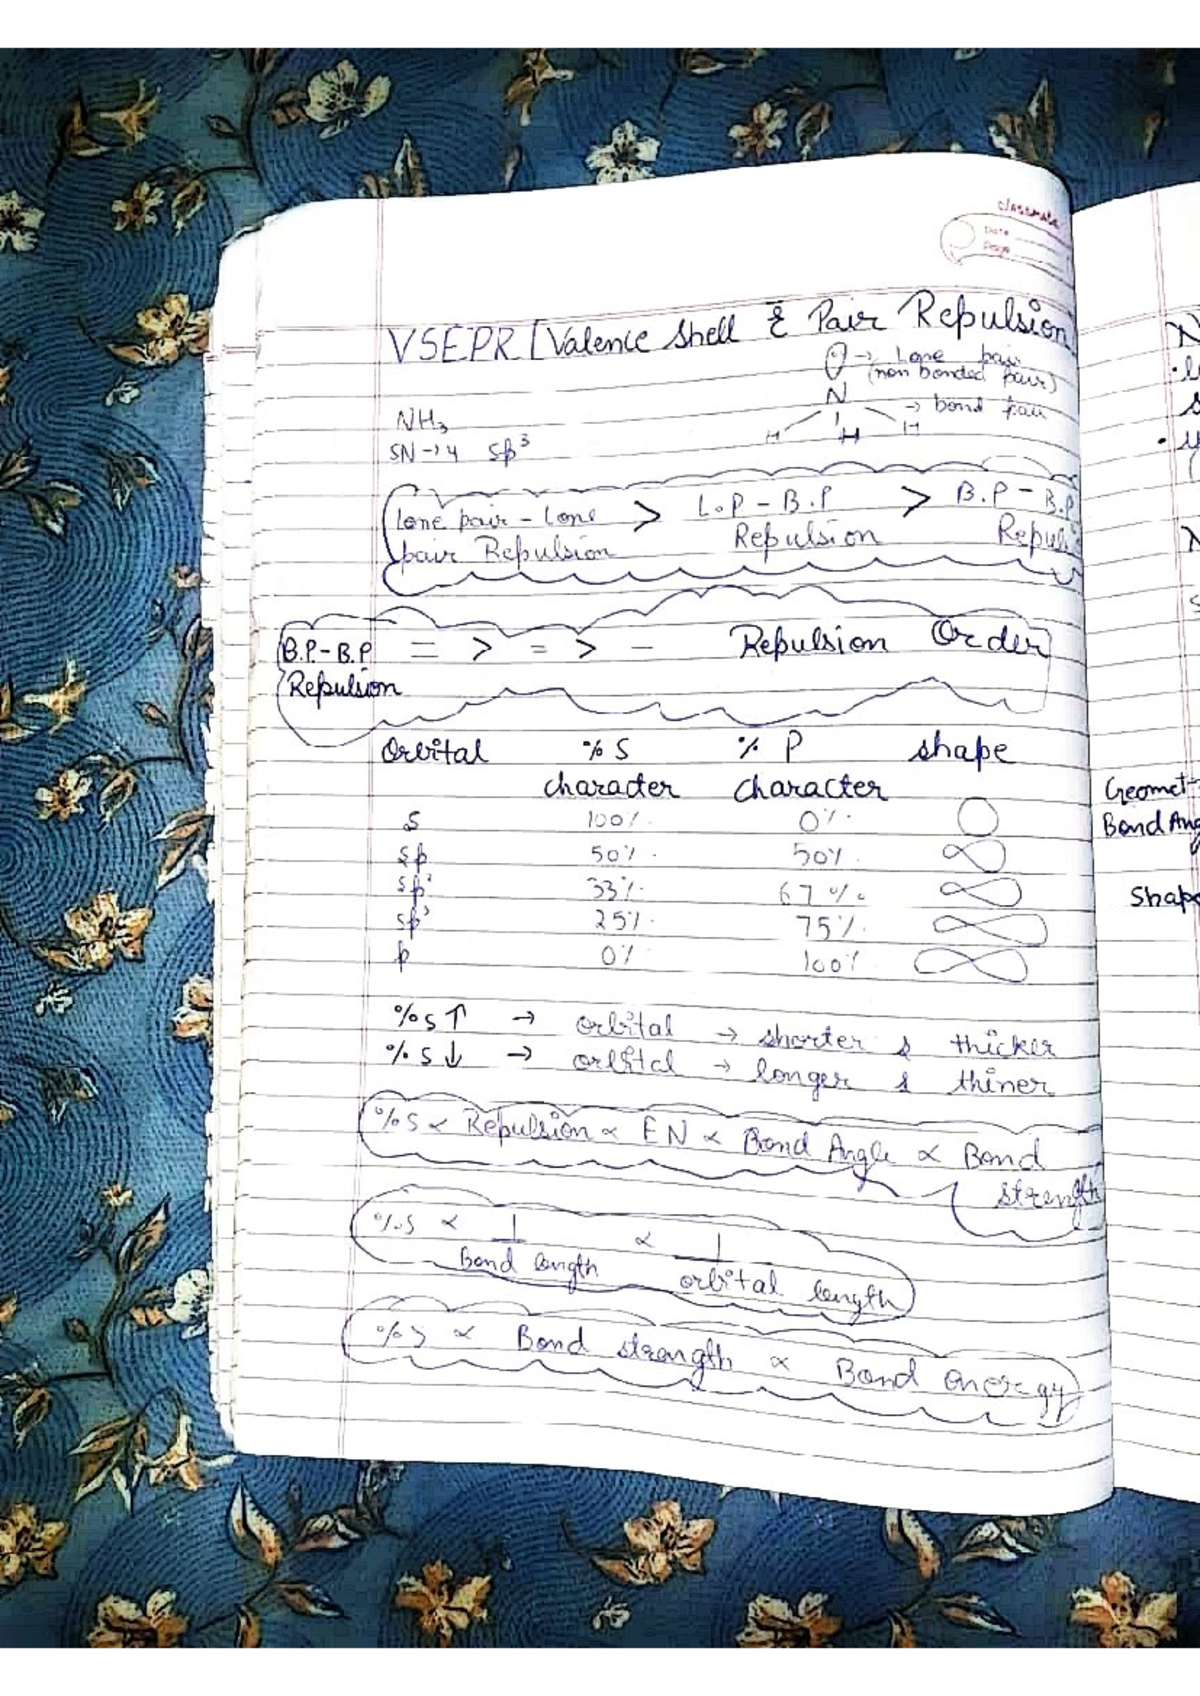 classmate
Date
Page
VSEPR [Valence Shell ē Pair Repulsion
→ Lone pair
(non bonded pair)
N
→ bond pair
H H H
NH₃
SN→4 sp³
lone pair - lone > L.P - B.P > B.P - B.P
pair Repulsion Repulsion Repulsi
B.P.-B.P = > = > - Repulsion Order
Repulsion
Orbital % S % P shape
character character
s 100% 0%
sp 50% 50%
sp² 33% 67%
sp³ 25% 75%
p 0% 100%
%s↑ → orbital → shorter & thicker
%s↓ → orbital → longer & thiner
%s ∝ Repulsion ∝ EN ∝ Bond Angle ∝ Bond
strength
%s ∝ 1 ∝ 1
Bond length orbital length
%s ∝ Bond strength ∝ Bond energy
Geomet-
Bond Ang
Shape